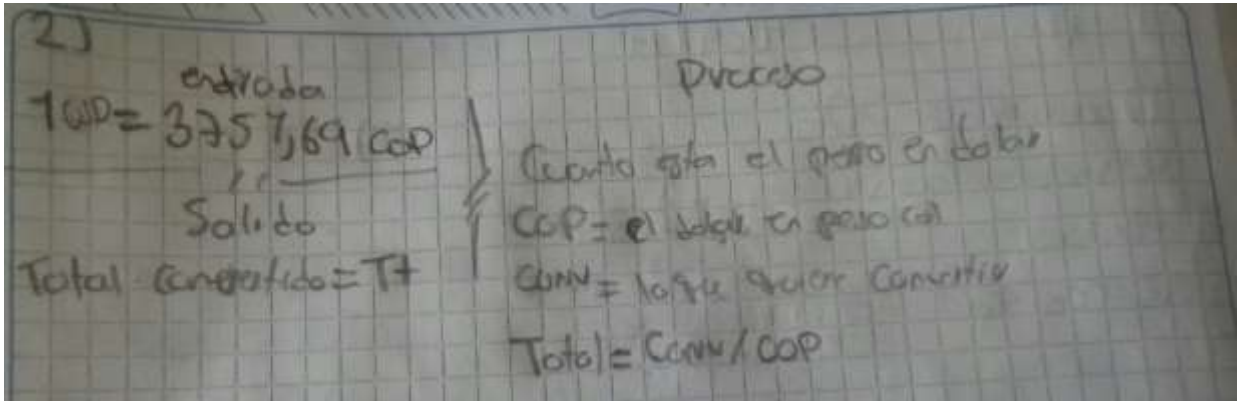 2)
entrada
1 USD = 3757,69 COP
Salida
Total convertido = Tt
Proceso
Cuanto esta el peso en dolar
COP = el dolar en peso col
Conv = lo que quiere convertir
Total = Conv / COP